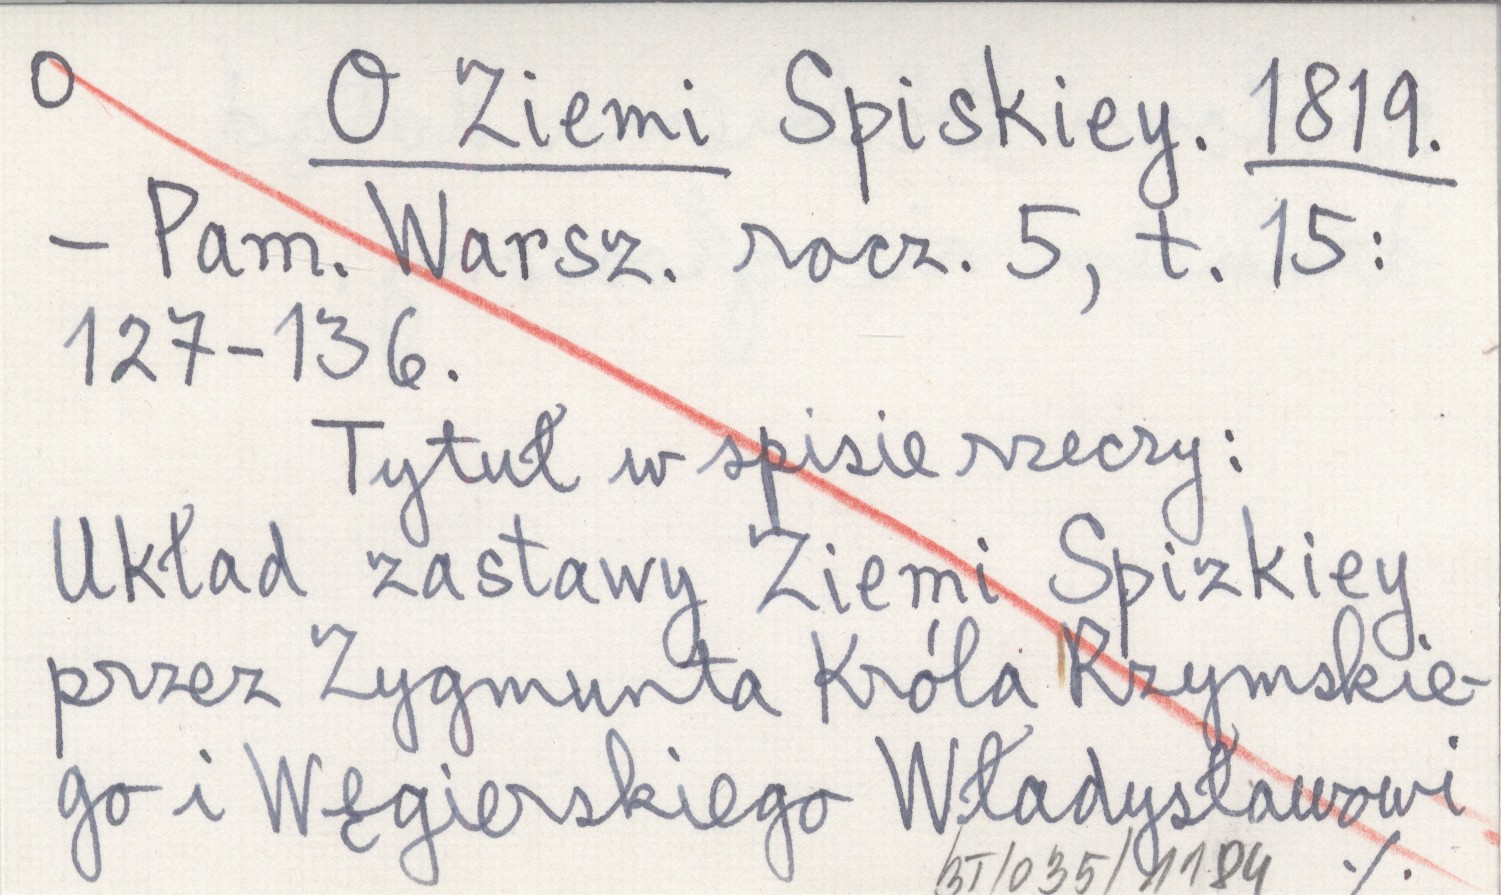 O O Ziemi Spiskiey. 1819.
- Pam. Warsz. rocz. 5, t. 15:
127-136.
Tytuł w spisie rzeczy:
Układ zastawy Ziemi Spizkiey
przez Zygmunta Króla Rzymskie-
go i Węgierskiego Władysławowi
BI/035/1184 ./.